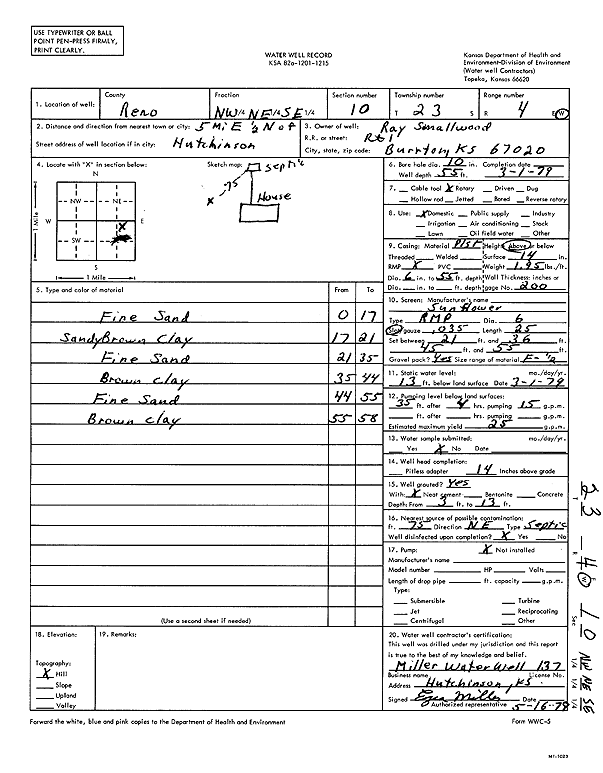 USE TYPEWRITER OR BALL
POINT PEN-PRESS FIRMLY,
PRINT CLEARLY.
WATER WELL RECORD
KSA 82a-1201-1215
Kansas Department of Health and
Environment-Division of Environment
(Water well Contractors)
Topeka, Kansas 66620
1. Location of well:
County
Reno
Fraction
NW 1/4 NE 1/4 SE 1/4
Section number
10
Township number
T 23 S
Range number
R 4 E W
2. Distance and direction from nearest town or city: 5 Mi E ½ N of
Street address of well location if in city: Hutchinson
3. Owner of well: Ray Smallwood
R.R. or street: Rt 1
City, state, zip code: Burrton, KS 67020
4. Locate with "X" in section below:
N
NW NE
W E
SW
S
1 Mile
1 Mile
Sketch map:
Septic
75
X
House
5. Type and color of material From To
Fine Sand 0 17
Sandy Brown Clay 17 21
Fine Sand 21 35
Brown Clay 35 44
Fine Sand 44 55
Brown Clay 55 58
(Use a second sheet if needed)
6. Bore hole dia. 10 in. Completion date
Well depth 55 ft. 3-1-79
7. Cable tool X Rotary Driven Dug
Hollow rod Jetted Bored Reverse rotary
8. Use: X Domestic Public supply Industry
Irrigation Air conditioning Stock
Lawn Oil field water Other
9. Casing: Material Height: Above or below
Threaded Welded Surface 14 in.
RMP X PVC Weight 1.95 lbs./ft.
Dia. 6 in. to 55 ft. depth Wall Thickness: inches or
Dia. in. to ft. depth gage No. 200
10. Screen: Manufacturer's name
Sunflower
Type RMP Dia. 6
Slot gauze .035 Length 25
Set between 21 ft. and 36 ft.
45 ft. and 55 ft.
Gravel pack? Yes Size range of material
11. Static water level: mo./day/yr.
13 ft. below land surface Date 3-1-79
12. Pumping level below land surfaces:
35 ft. after 4 hrs. pumping 15 g.p.m.
ft. after hrs. pumping g.p.m.
Estimated maximum yield 25 g.p.m.
13. Water sample submitted: mo./day/yr.
Yes X No Date
14. Well head completion:
Pitless adapter 14 Inches above grade
15. Well grouted? Yes
With: X Neat cement Bentonite Concrete
Depth: From 3 ft. to 13 ft.
16. Nearest source of possible contamination:
ft. 75 Direction NE Type Septic
Well disinfected upon completion? X Yes No
17. Pump: X Not installed
Manufacturer's name
Model number HP Volts
Length of drop pipe ft. capacity g.p.m.
Type:
Submersible Turbine
Jet Reciprocating
Centrifugal Other
18. Elevation:
Topography:
X Hill
Slope
Upland
Valley
19. Remarks:
20. Water well contractor's certification:
This well was drilled under my jurisdiction and this report
is true to the best of my knowledge and belief.
Miller Water Well 137
Business name License No.
Address Hutchinson, KS.
Signed Miller Date 5-16-79
Authorized representative
T 23 - R 4 W Sec 10 NW 1/4 NE 1/4 SE 1/4
Forward the white, blue and pink copies to the Department of Health and Environment
Form WWC-5